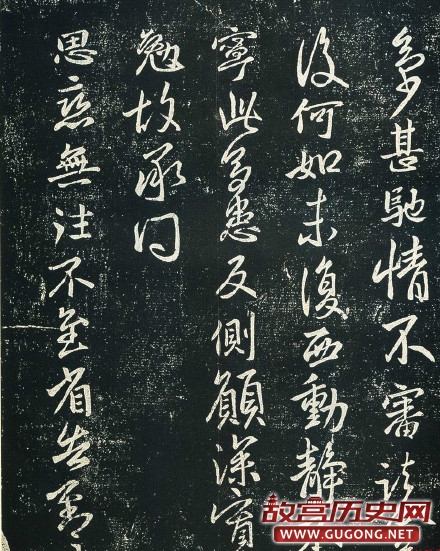 甚馳情不審
後何如未復西動靜
寧此多患反側顧深
勉故承問
思戀無往不至省告
故宫历史网
WWW.GUGONG.NET